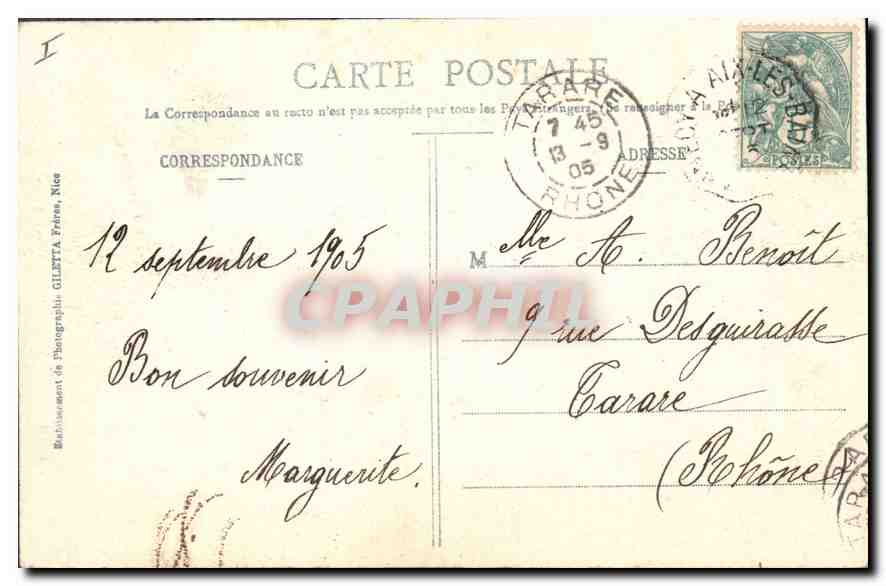 I
CARTE POSTALE
La Correspondance au recto n'est pas acceptée par tous les Pays étrangers. (Se renseigner à la
CORRESPONDANCE
ADRESSE
TARARE
7 45
13 -9
05
RHONE
AIX-LES-BA
POSTES
12 septembre 1905
Bon souvenir
Marguerite.
M
Mlle A. Benoît
9 rue Desguirasse
Tarare
(Rhône)
Etablissement de Photographie GILETTA Frères, Nice
CPAPHIL
TAR